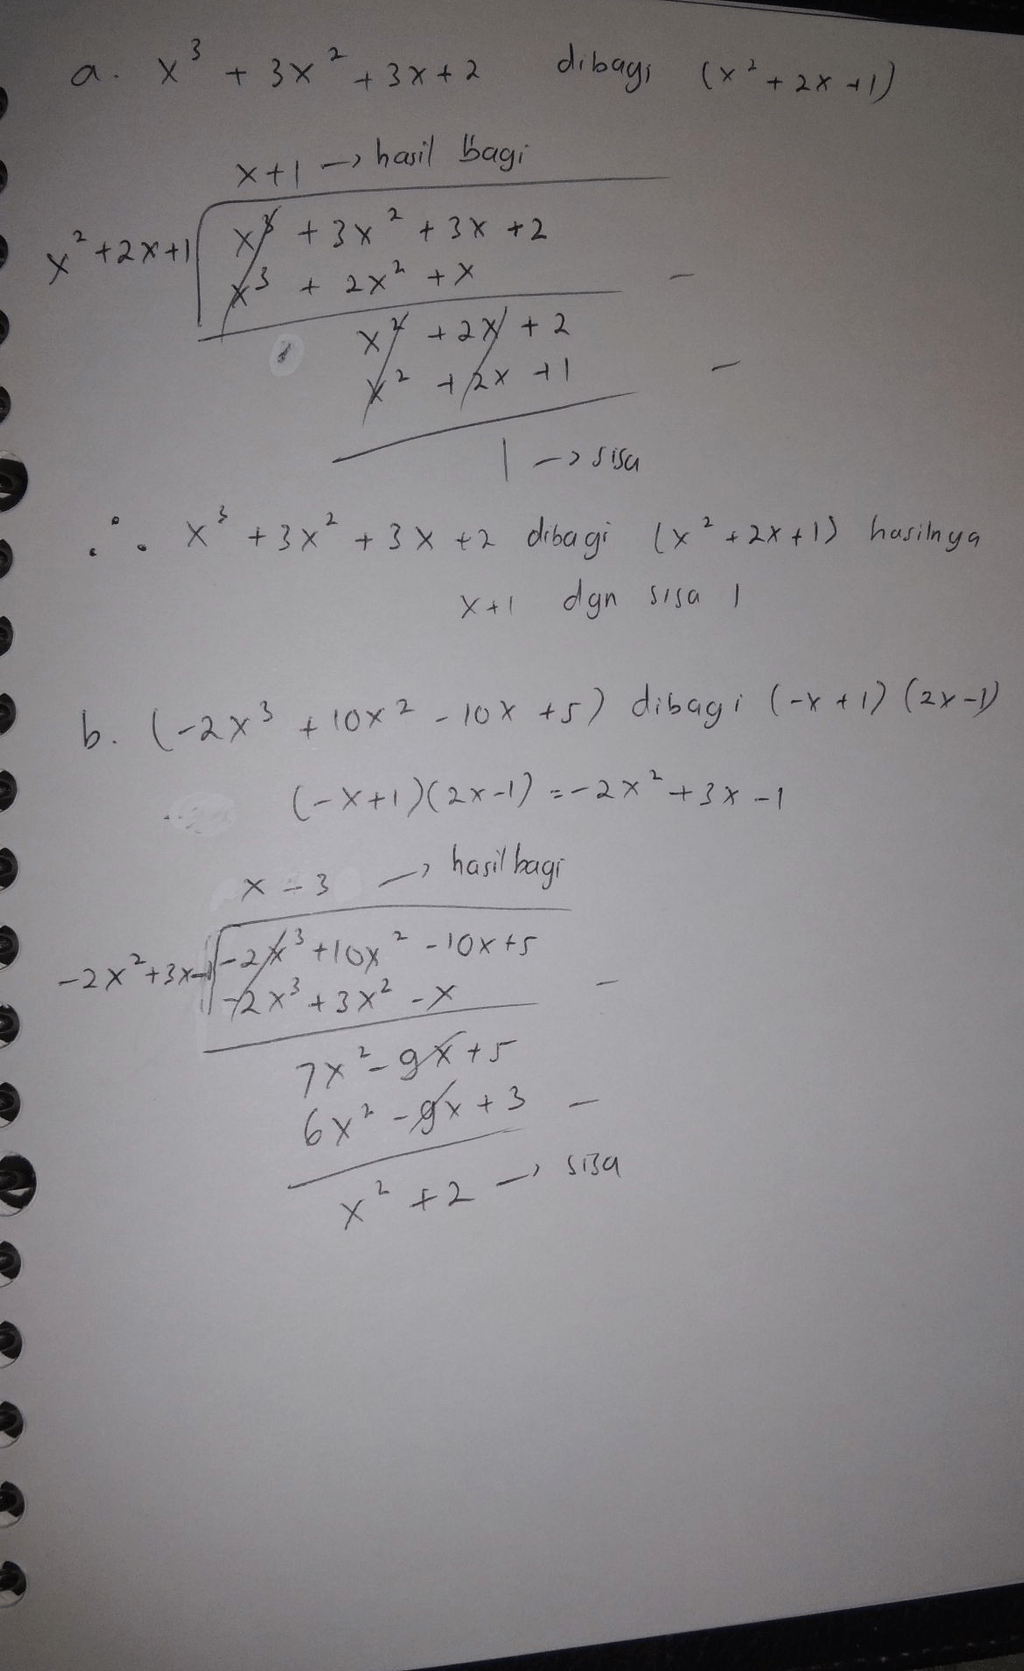 a. x³ + 3x² + 3x + 2 dibagi (x² + 2x + 1)
x+1 → hasil bagi
x² + 2x + 1 x³ + 3x² + 3x + 2
x³ + 2x² + x −
x² + 2x + 2
x² + 2x + 1 −
1 → sisa
∴ x³ + 3x² + 3x + 2 dibagi (x² + 2x + 1) hasilnya
x+1 dgn sisa 1
b. (-2x³ + 10x² - 10x + 5) dibagi (-x + 1) (2x - 1)
(-x+1)(2x-1) = -2x² + 3x - 1
x - 3 → hasil bagi
-2x² + 3x - 1 -2x³ + 10x² - 10x + 5
-2x³ + 3x² - x −
7x² - 9x + 5
6x² - 9x + 3 −
x² + 2 → sisa